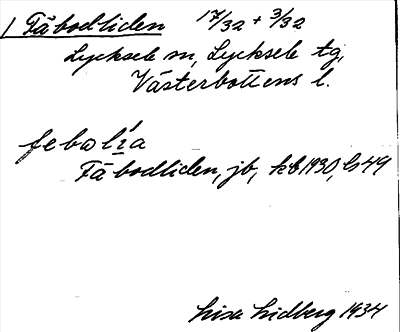 1 Fäbodliden 17/32 + 3/32
Lycksele sn, Lycksele tg,
Västerbottens l.
febolía
Fäbodliden, jb, kb 1930, b 49
Lisa Lidberg 1934